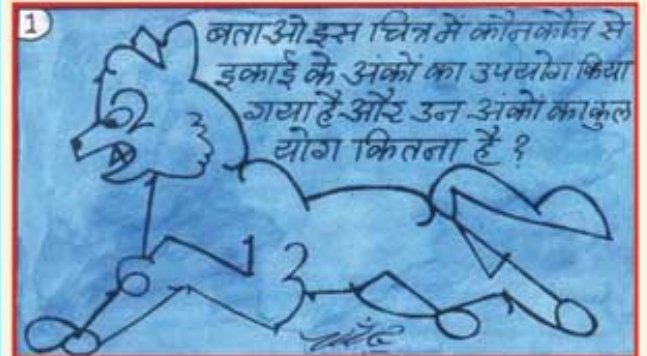 1
बताओ इस चित्र में कौन कौन से
इकाई के अंकों का उपयोग किया
गया है और उन अंकों का कुल
योग कितना है ?